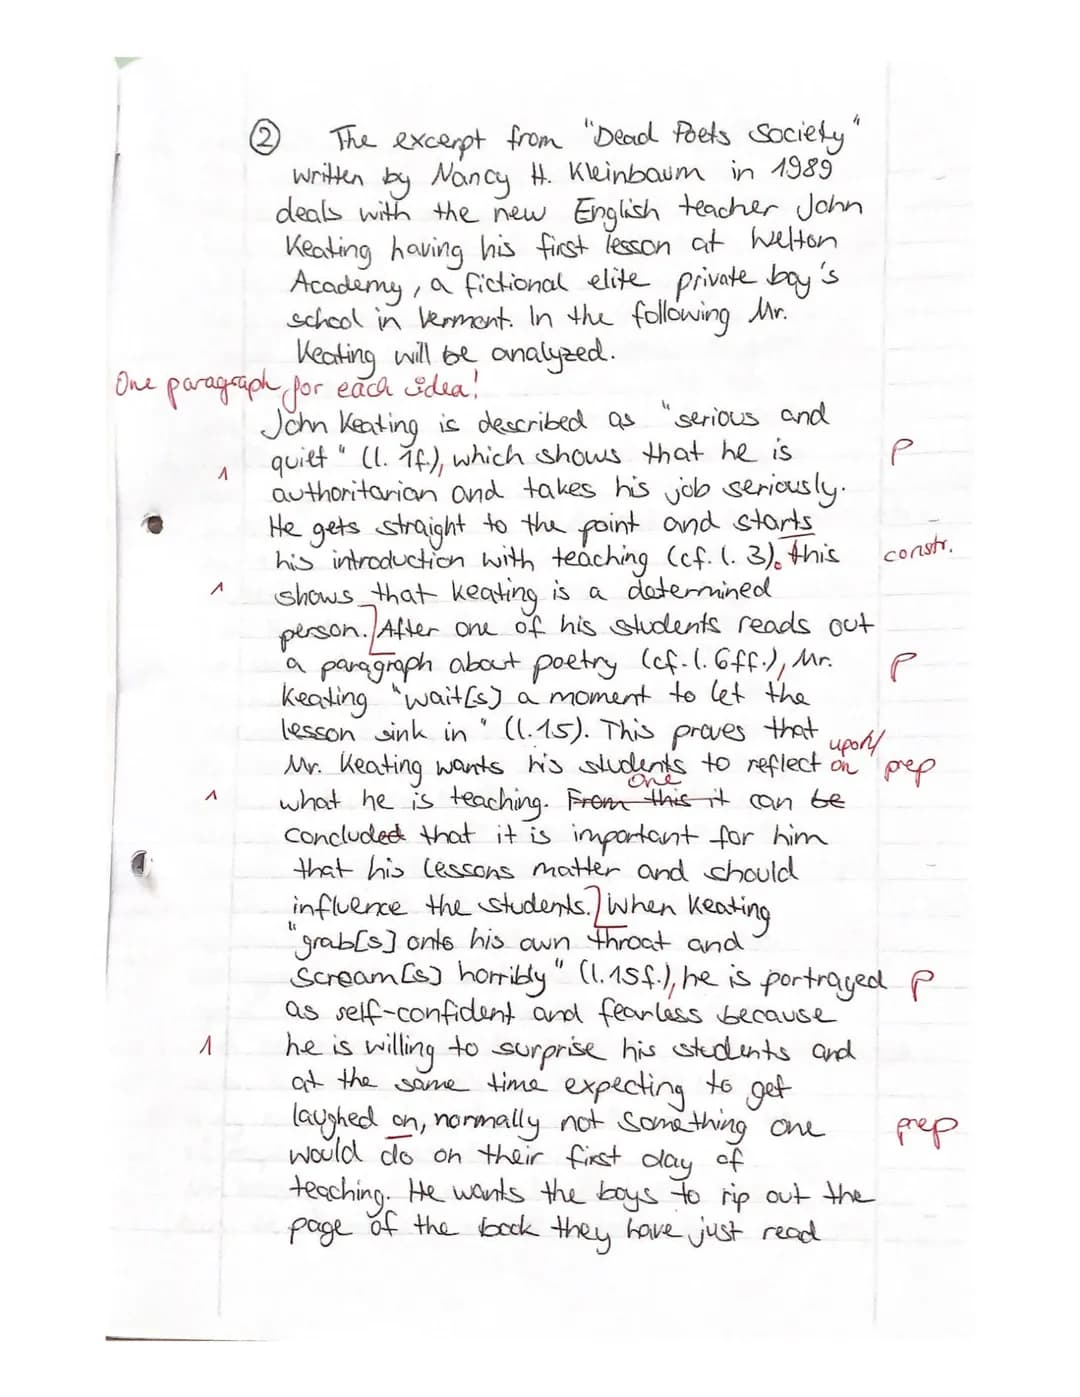 ② The excerpt from "Dead Poets Society"
written by Nancy H. Kleinbaum in 1989
deals with the new English teacher John
Keating having his first lesson at Welton
Academy, a fictional elite private boy's
school in Vermont. In the following Mr.
Keating will be analyzed.
One paragraph for each idea!
John Keating is described as "serious and
quiet" (l. 1f.), which shows that he is P
1 authoritarian and takes his job seriously.
He gets straight to the point and starts
his introduction with teaching (cf. l. 3). this constr.
1 shows that Keating is a determined
person. After one of his students reads out
a paragraph about poetry (cf. l. 6ff.), Mr. P
Keating "wait[s] a moment to let the
lesson sink in" (l.15). This proves that
upon/
Mr. Keating wants his students to reflect on prep
one
1 what he is teaching. From this it can be
concluded that it is important for him
that his lessons matter and should
influence the students. When Keating
"grab[s] onto his own throat and
scream[s] horribly" (l.15f.), he is portrayed P
as self-confident and fearless because
1 he is willing to surprise his students and
at the same time expecting to get
laughed on, normally not something one prep
would do on their first day of
teaching. He wants the boys to rip out the
page of the book they have just read